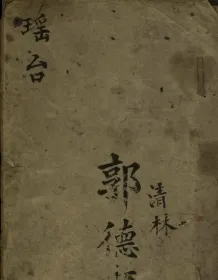 瑶台
清林
郭德